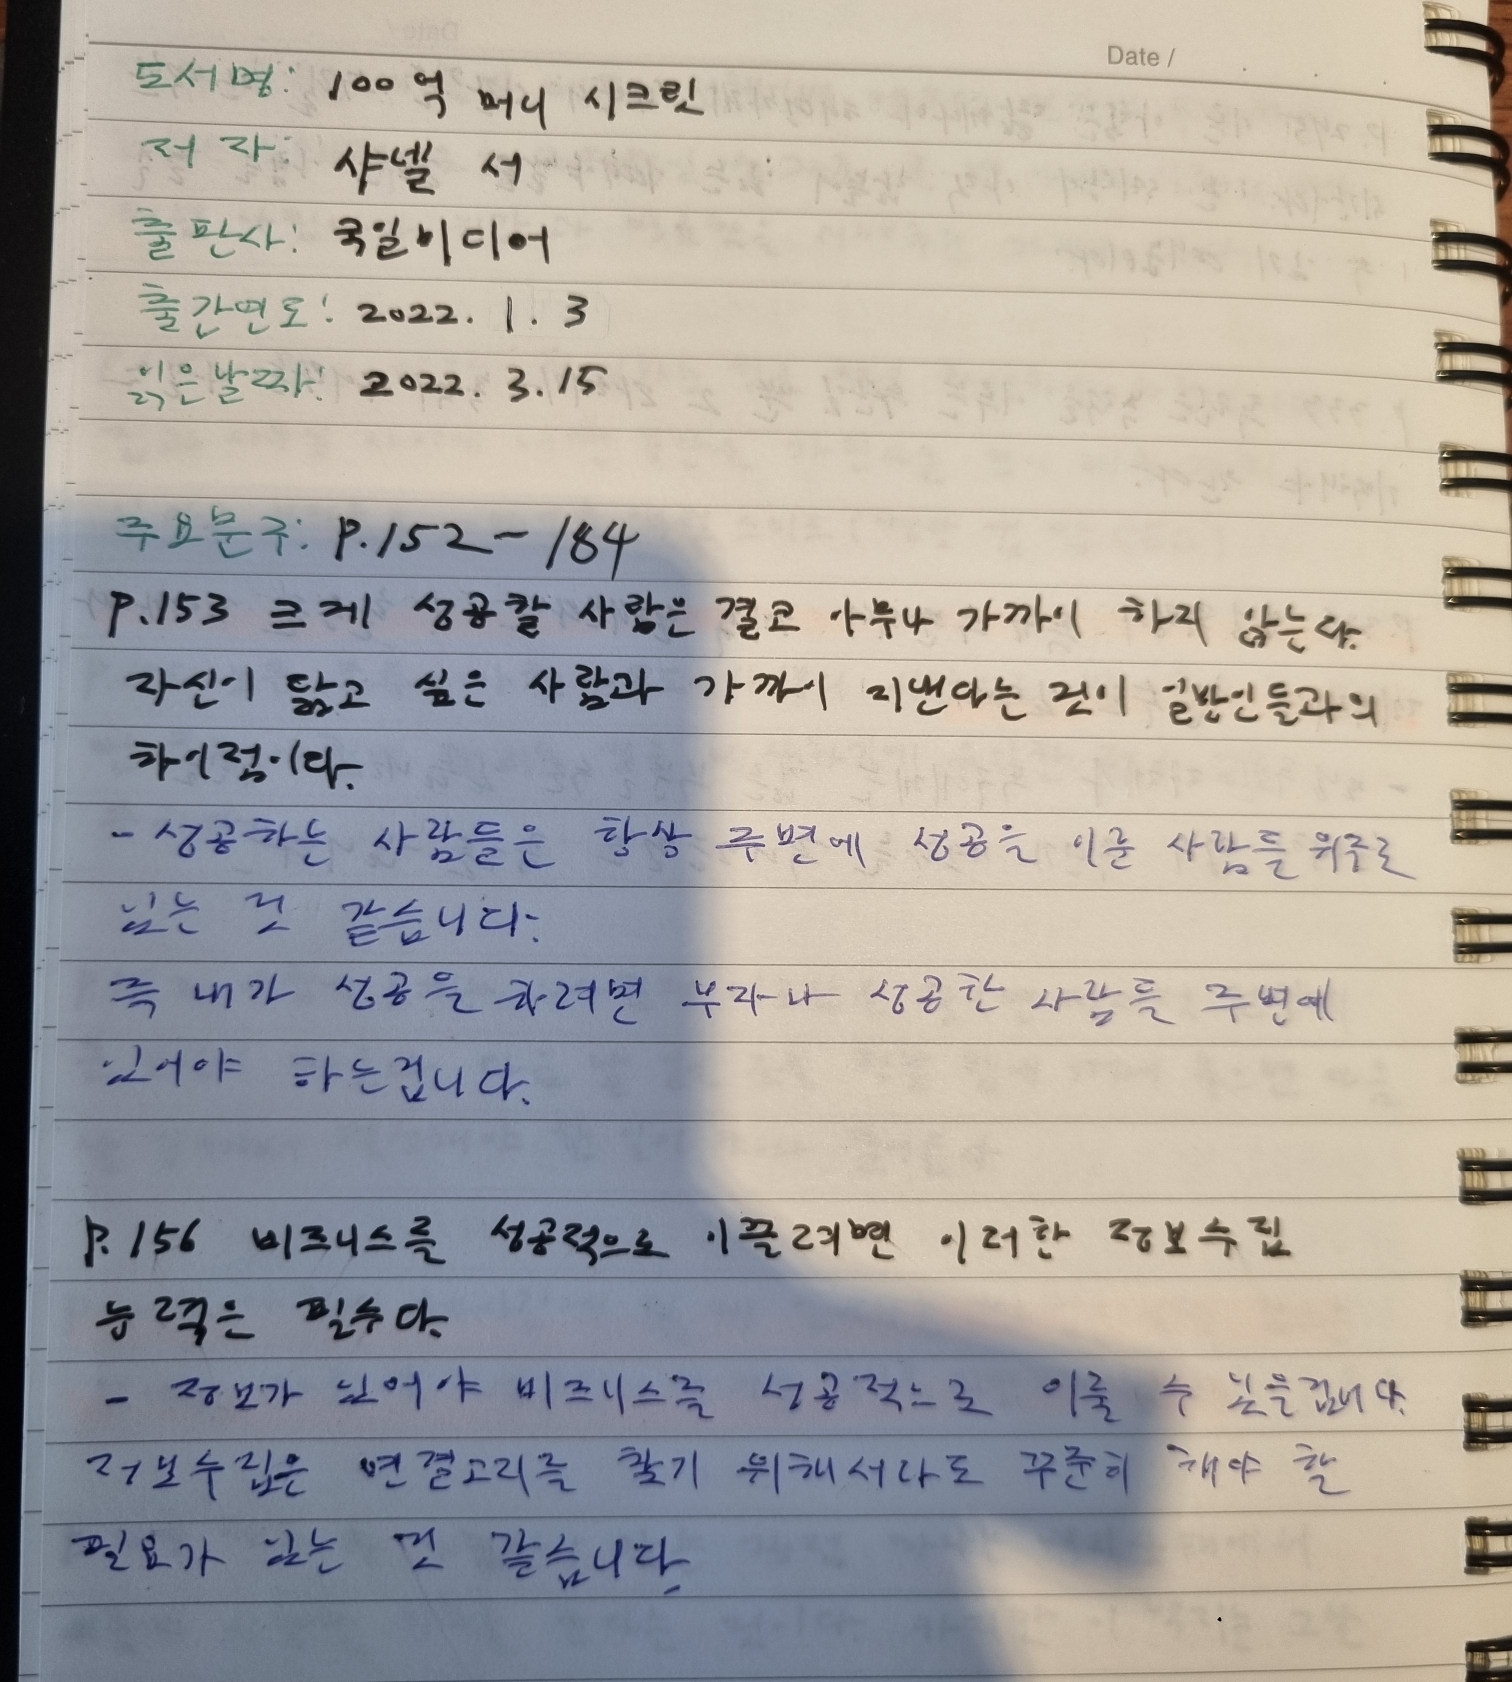 Date /
도서명: 100억 머니 시크릿
저자: 샤넬 서
출판사: 국일미디어
출간연도: 2022. 1. 3
읽은날짜: 2022. 3. 15
주요문구: P.152 - 184
P.153 크게 성공할 사람은 결코 아무나 가까이 하지 않는다.
자신이 닮고 싶은 사람과 가까이 지낸다는 것이 일반인들과의
차이점이다.
- 성공하는 사람들은 항상 주변에 성공을 이룬 사람들 위주로
있는 것 같습니다.
즉 내가 성공을 하려면 부자나 성공한 사람들 주변에
있어야 하는겁니다.
P.156 비즈니스를 성공적으로 이끌려면 이러한 정보수집
능력은 필수다.
- 정보가 있어야 비즈니스를 성공적으로 이룰 수 있을겁니다.
정보수집은 연결고리를 찾기 위해서라도 꾸준히 해야 할
필요가 있는 것 같습니다.